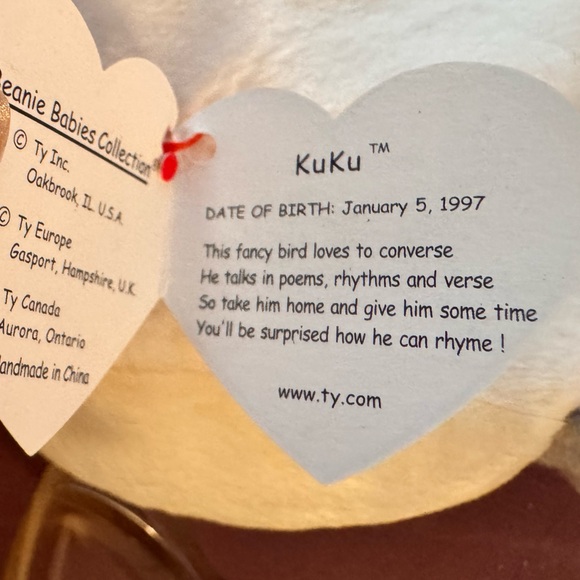 Beanie Babies Collection
© Ty Inc.
Oakbrook, IL. U.S.A.
© Ty Europe
Gasport, Hampshire, U.K.
Ty Canada
Aurora, Ontario
Handmade in China
KuKu ™
DATE OF BIRTH: January 5, 1997
This fancy bird loves to converse
He talks in poems, rhythms and verse
So take him home and give him some time
You'll be surprised how he can rhyme !
www.ty.com